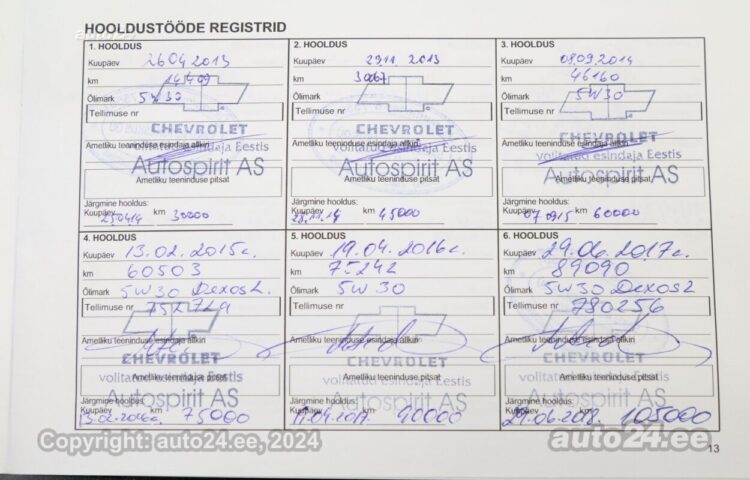 HOOLDUSTÖÖDE REGISTRID
1. HOOLDUS
Kuupäev 26 04 2013
km 14409
Õlimark 5W30
Tellimuse nr
CHEVROLET
volitatud esindaja Eestis
Ametliku teeninduse esindaja allkiri
Autospirit AS
Ametliku teeninduse pitsat
Järgmine hooldus:
Kuupäev km 30000
2. HOOLDUS
Kuupäev 29 11 2013
km 30067
Õlimark
Tellimuse nr
CHEVROLET
volitatud esindaja Eestis
Ametliku teeninduse esindaja allkiri
Autospirit AS
Ametliku teeninduse pitsat
Järgmine hooldus:
Kuupäev 28.11.14 km 45000
3. HOOLDUS
Kuupäev 08.09.2014
km 46160
Õlimark 5W30
Tellimuse nr
CHEVROLET
volitatud esindaja Eestis
Ametliku teeninduse esindaja allkiri
Autospirit AS
Ametliku teeninduse pitsat
Järgmine hooldus:
Kuupäev 07.0915 km 60000
4. HOOLDUS
Kuupäev 13.02.2015
km 60503
Õlimark 5W30 Dexos2
Tellimuse nr
Ametliku teeninduse esindaja allkiri
CHEVROLET
volitatud esindaja Eestis
Ametliku teeninduse pitsat
Autospirit AS
Järgmine hooldus:
Kuupäev km 75000
5. HOOLDUS
Kuupäev 19.04.2016
km 75242
Õlimark 5W 30
Tellimuse nr
Ametliku teeninduse esindaja allkiri
CHEVROLET
volitatud esindaja Eestis
Ametliku teeninduse pitsat
Autospirit AS
Järgmine hooldus:
Kuupäev 19.04.2017 km 90000
6. HOOLDUS
Kuupäev 29.06.2017
km 89090
Õlimark 5W30 Dexos2
Tellimuse nr 780256
Ametliku teeninduse esindaja allkiri
CHEVROLET
volitatud esindaja Eestis
Ametliku teeninduse pitsat
Autospirit AS
Järgmine hooldus:
Kuupäev 29.06.2018. km 105000
Copyright: auto24.ee, 2024
auto24.ee
13